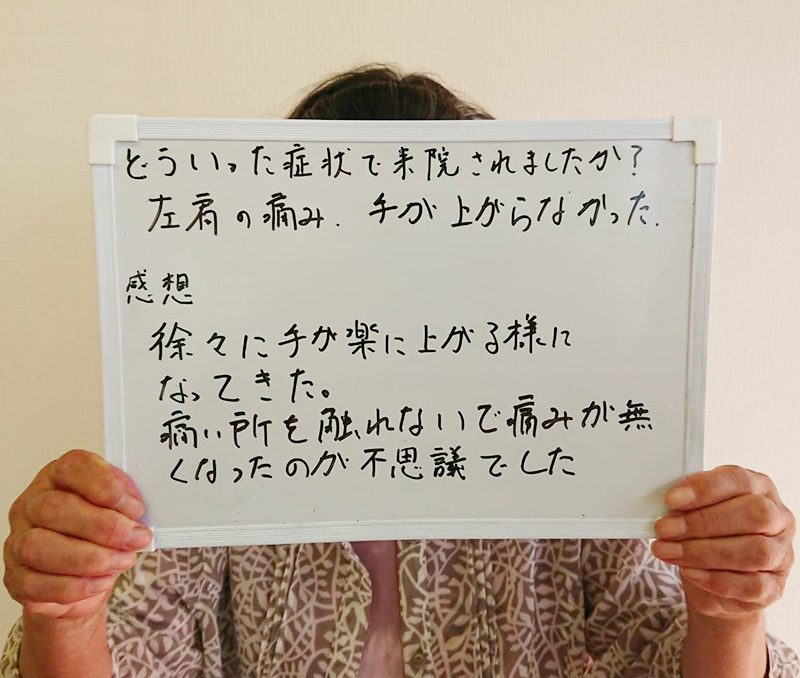 どういった症状で来院されましたか?
左肩の痛み. 手が上がらなかった.
感想
徐々に手が楽に上がる様に
なってきた。
痛い所を触れないで痛みが無
くなったのが不思議でした